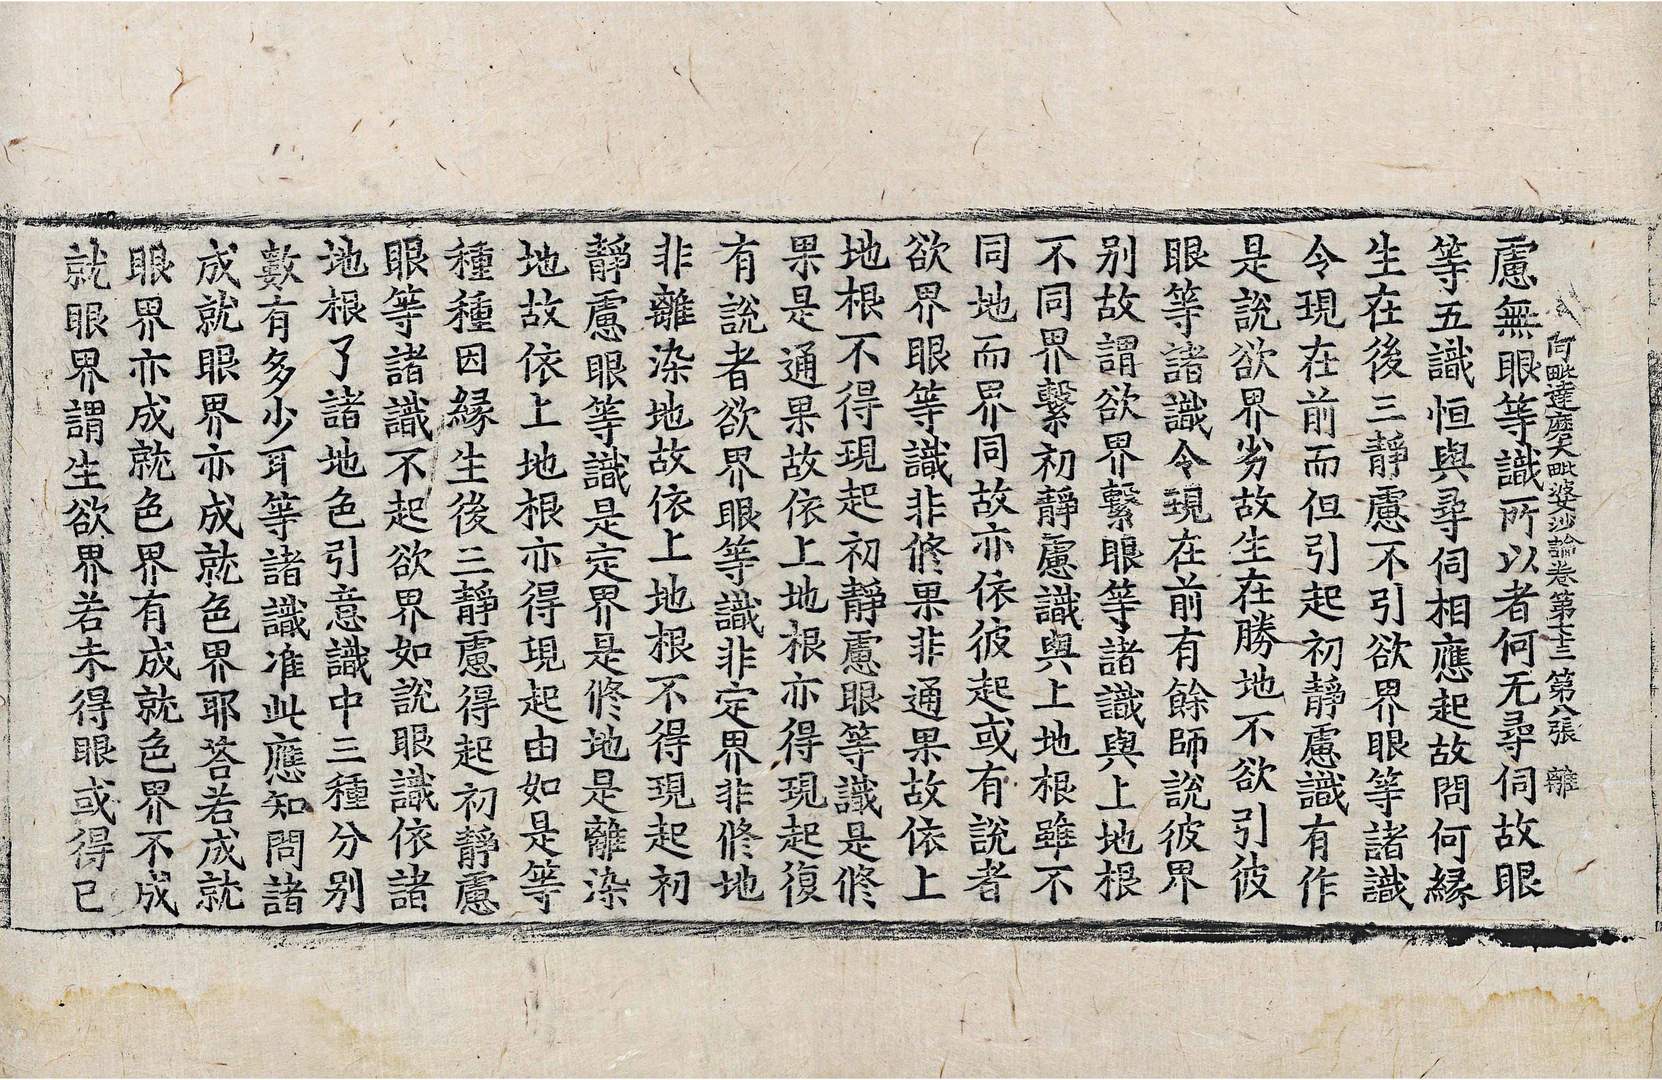 阿毗達磨大毗婆沙論卷第七十三 第八張 離
慮無眼等識所以者何无尋伺故眼
等五識恒與尋伺相應起故問何緣
生在後三靜慮不引欲界眼等諸識
令現在前而但引起初靜慮識有作
是說欲界劣故生在勝地不欲引彼
眼等諸識令現在前有餘師說彼界
別故謂欲界繫眼等諸識與上地根
不同界繫初靜慮識與上地根雖不
同地而界同故亦依彼起或有說者
欲界眼等識非修果非通果故依上
地根不得現起初靜慮眼等識是修
果是通果故依上地根亦得現起復
有說者欲界眼等識非定界非修地
非離染地故依上地根不得現起初
靜慮眼等識是定界是修地是離染
地故依上地根亦得現起由如是等
種種因緣生後三靜慮得起初靜慮
眼等諸識不起欲界如說眼識依諸
地根了諸地色引意識中三種分別
數有多少耳等諸識准此應知問諸
成就眼界亦成就色界耶答若成就
眼界亦成就色界有成就色界不成
就眼界謂生欲界若未得眼或得已